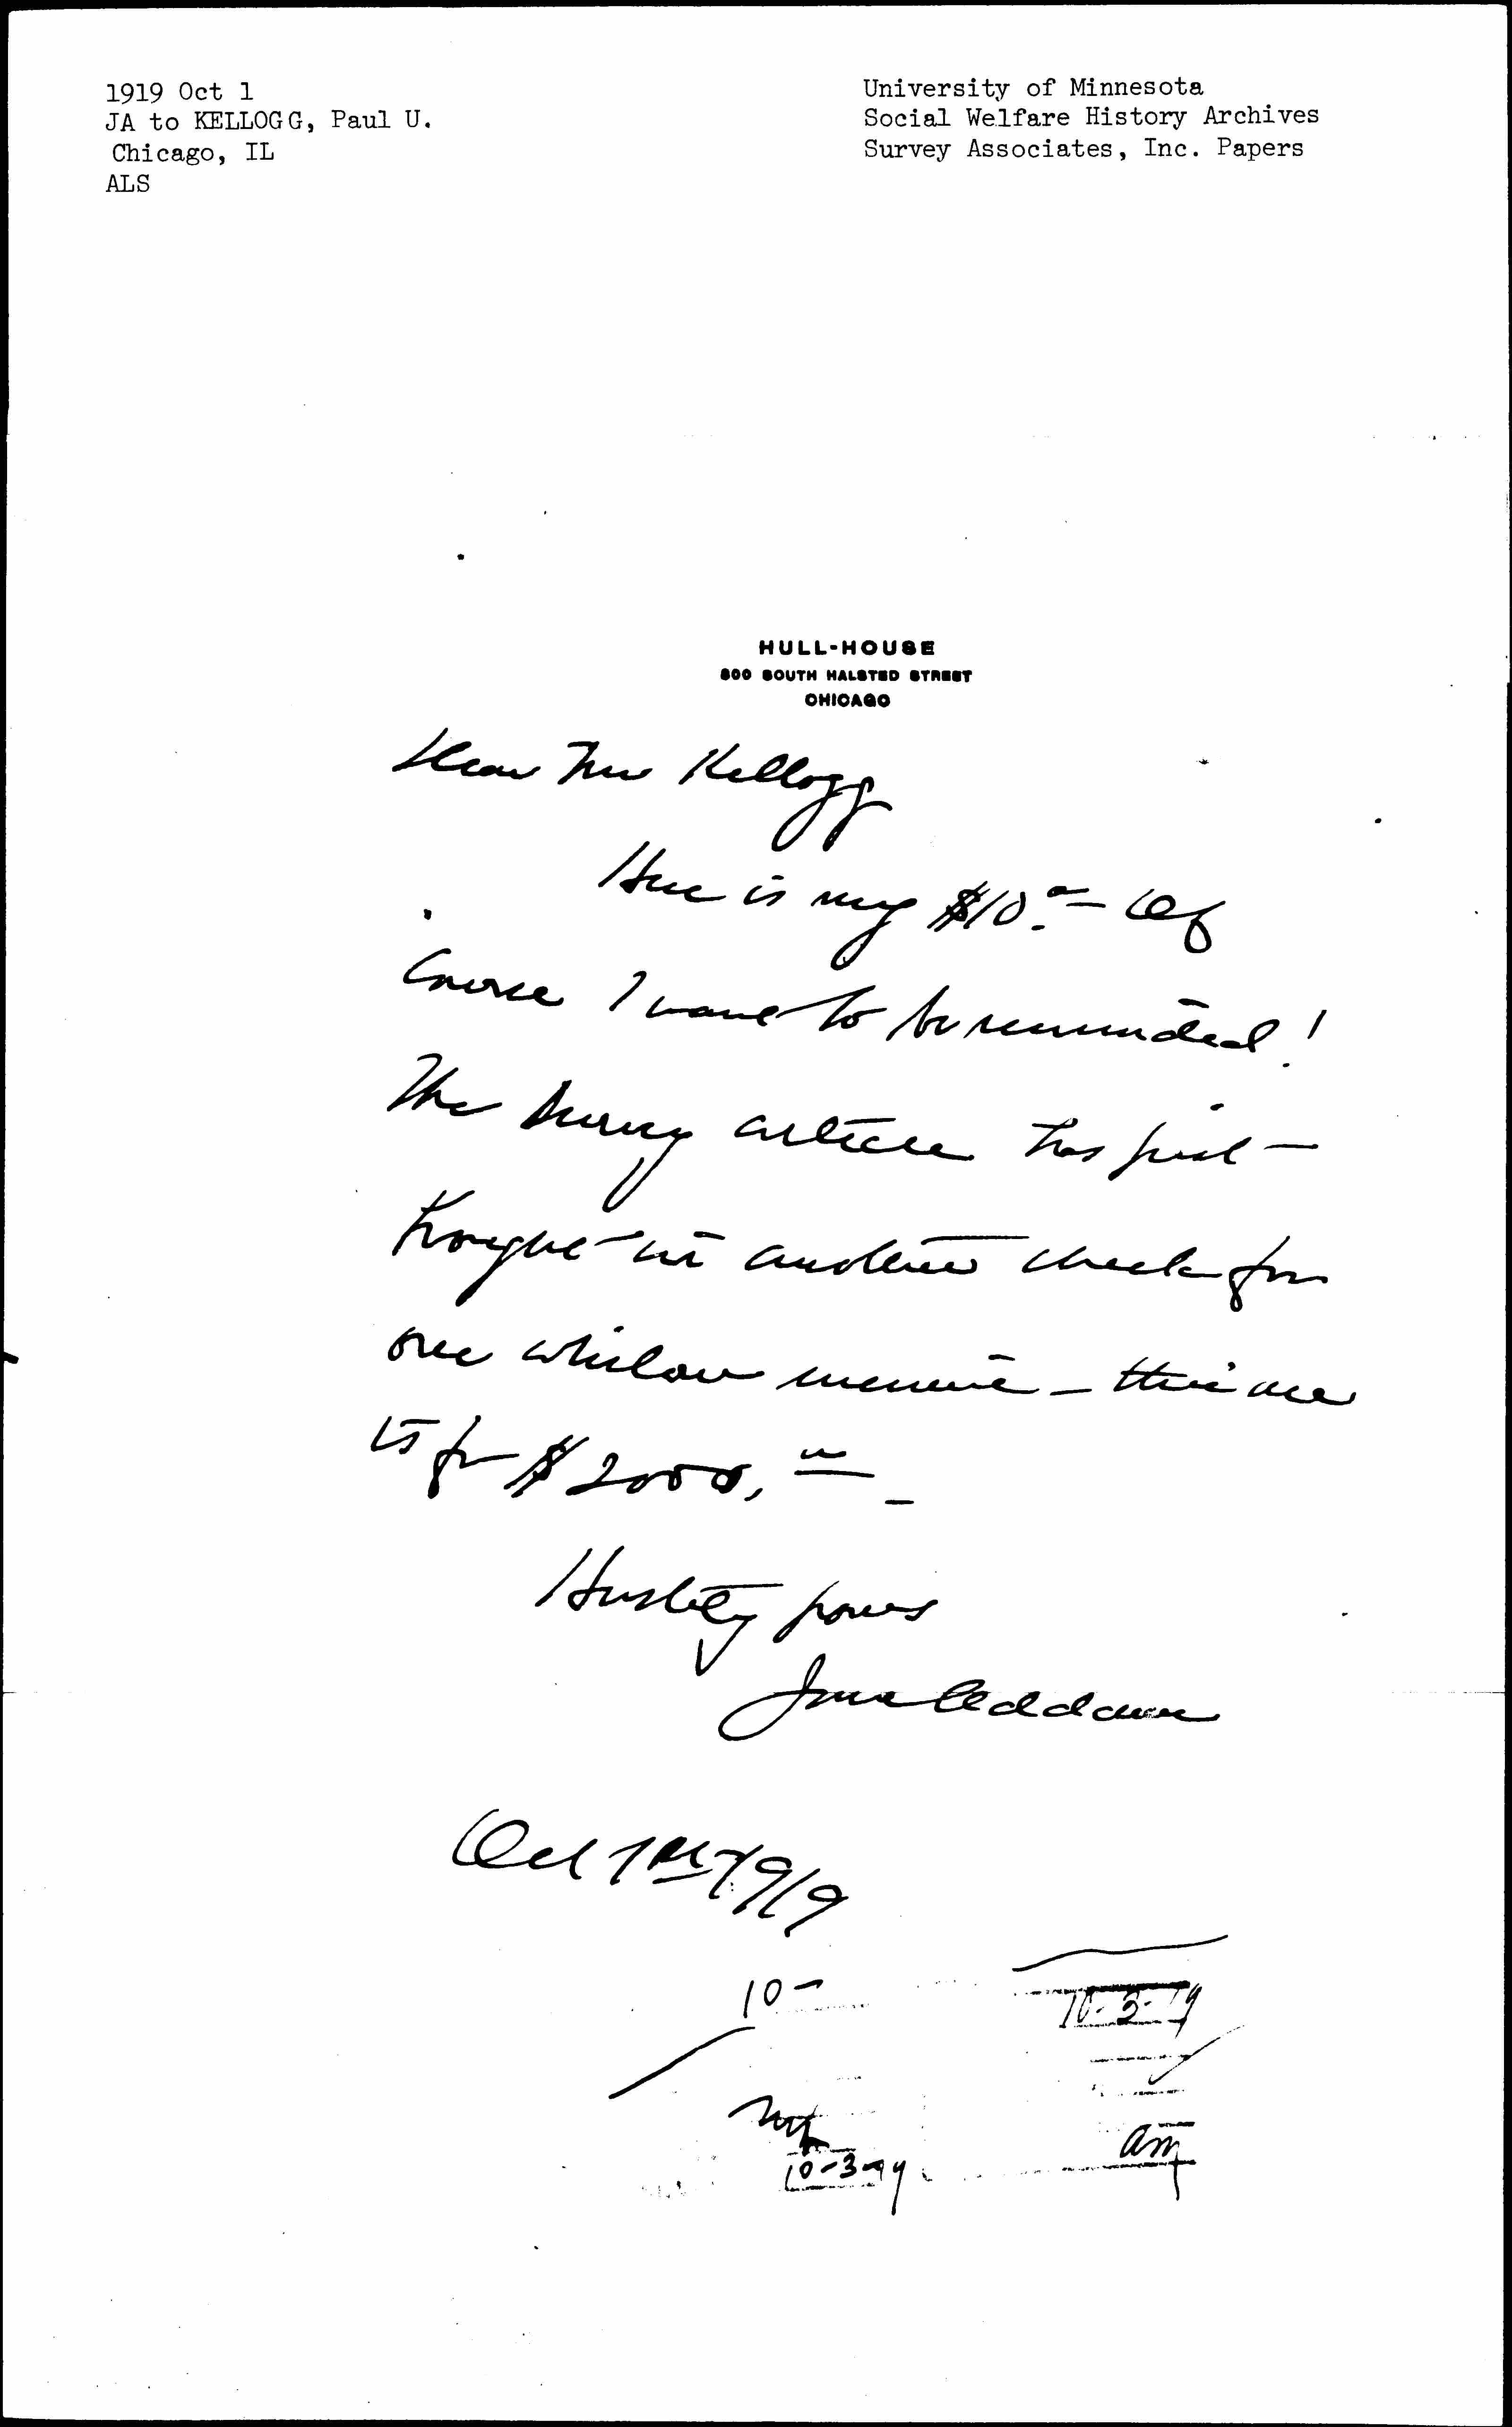 1919 Oct 1
JA to KELLOGG, Paul U.
Chicago, IL
ALS
University of Minnesota
Social Welfare History Archives
Survey Associates, Inc. Papers
HULL-HOUSE
800 SOUTH HALSTED STREET
CHICAGO
Dear Mr Kellogg
Here is my $10.00 — Of
course I want to be reminded!
The Survey article has just
brought in another check for
one — this one
is for $2000.00 —
Hastily yours
Jane Addams
Oct 1st 1919
10 —
10-3-19
10-3-19
am